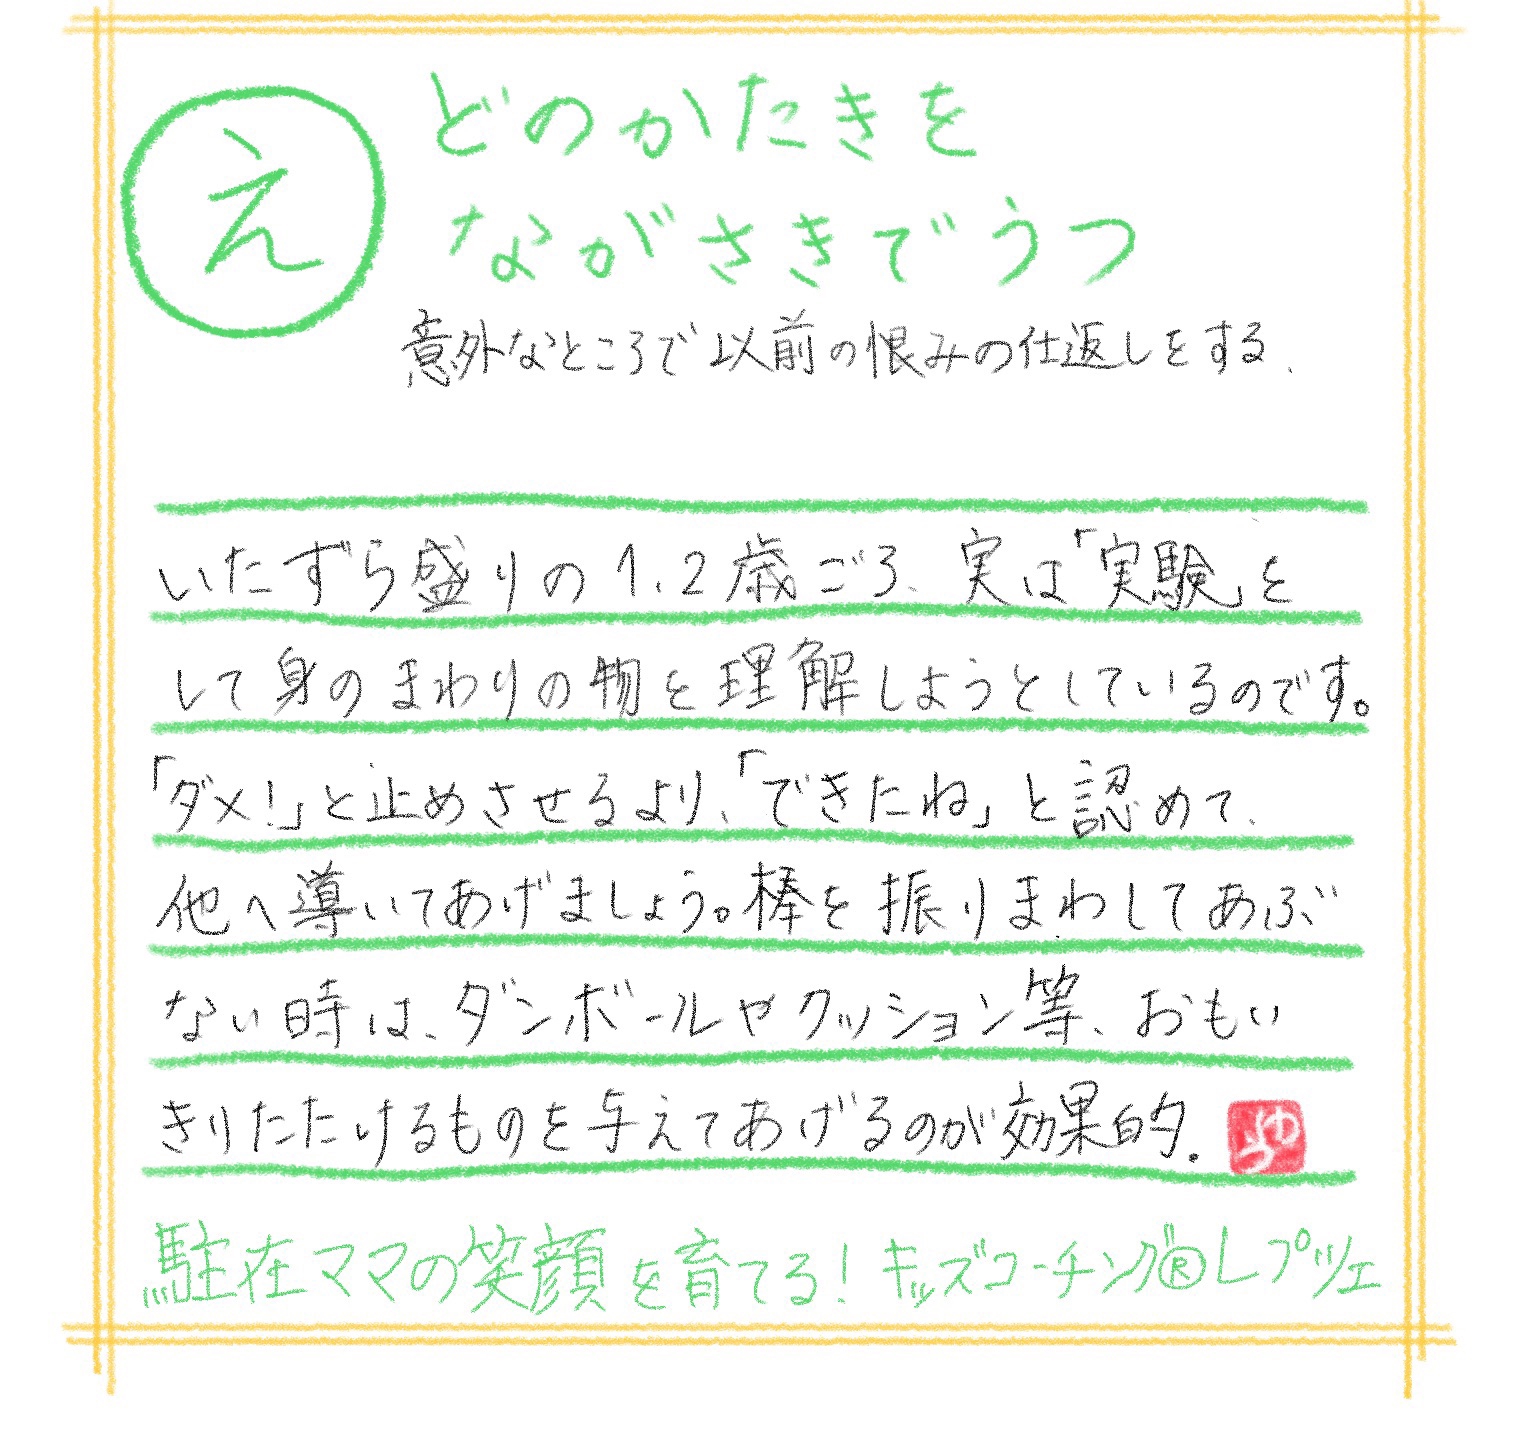 え
どのかたきを
ながさきでうつ
意外なところで以前の恨みの仕返しをする、
いたずら盛りの1、2歳ごろ、実は「実験」を
して身のまわりの物を理解しようとしているのです。
「ダメ!」と止めさせるより、「できたね」と認めて、
他へ導いてあげましょう。棒を振りまわしてあぶ
ない時は、ダンボールやクッション等、おもい
きりたたけるものを与えてあげるのが効果的.
ゆう
駐在ママの笑顔を育てる!キッズコーチング®レプツェ